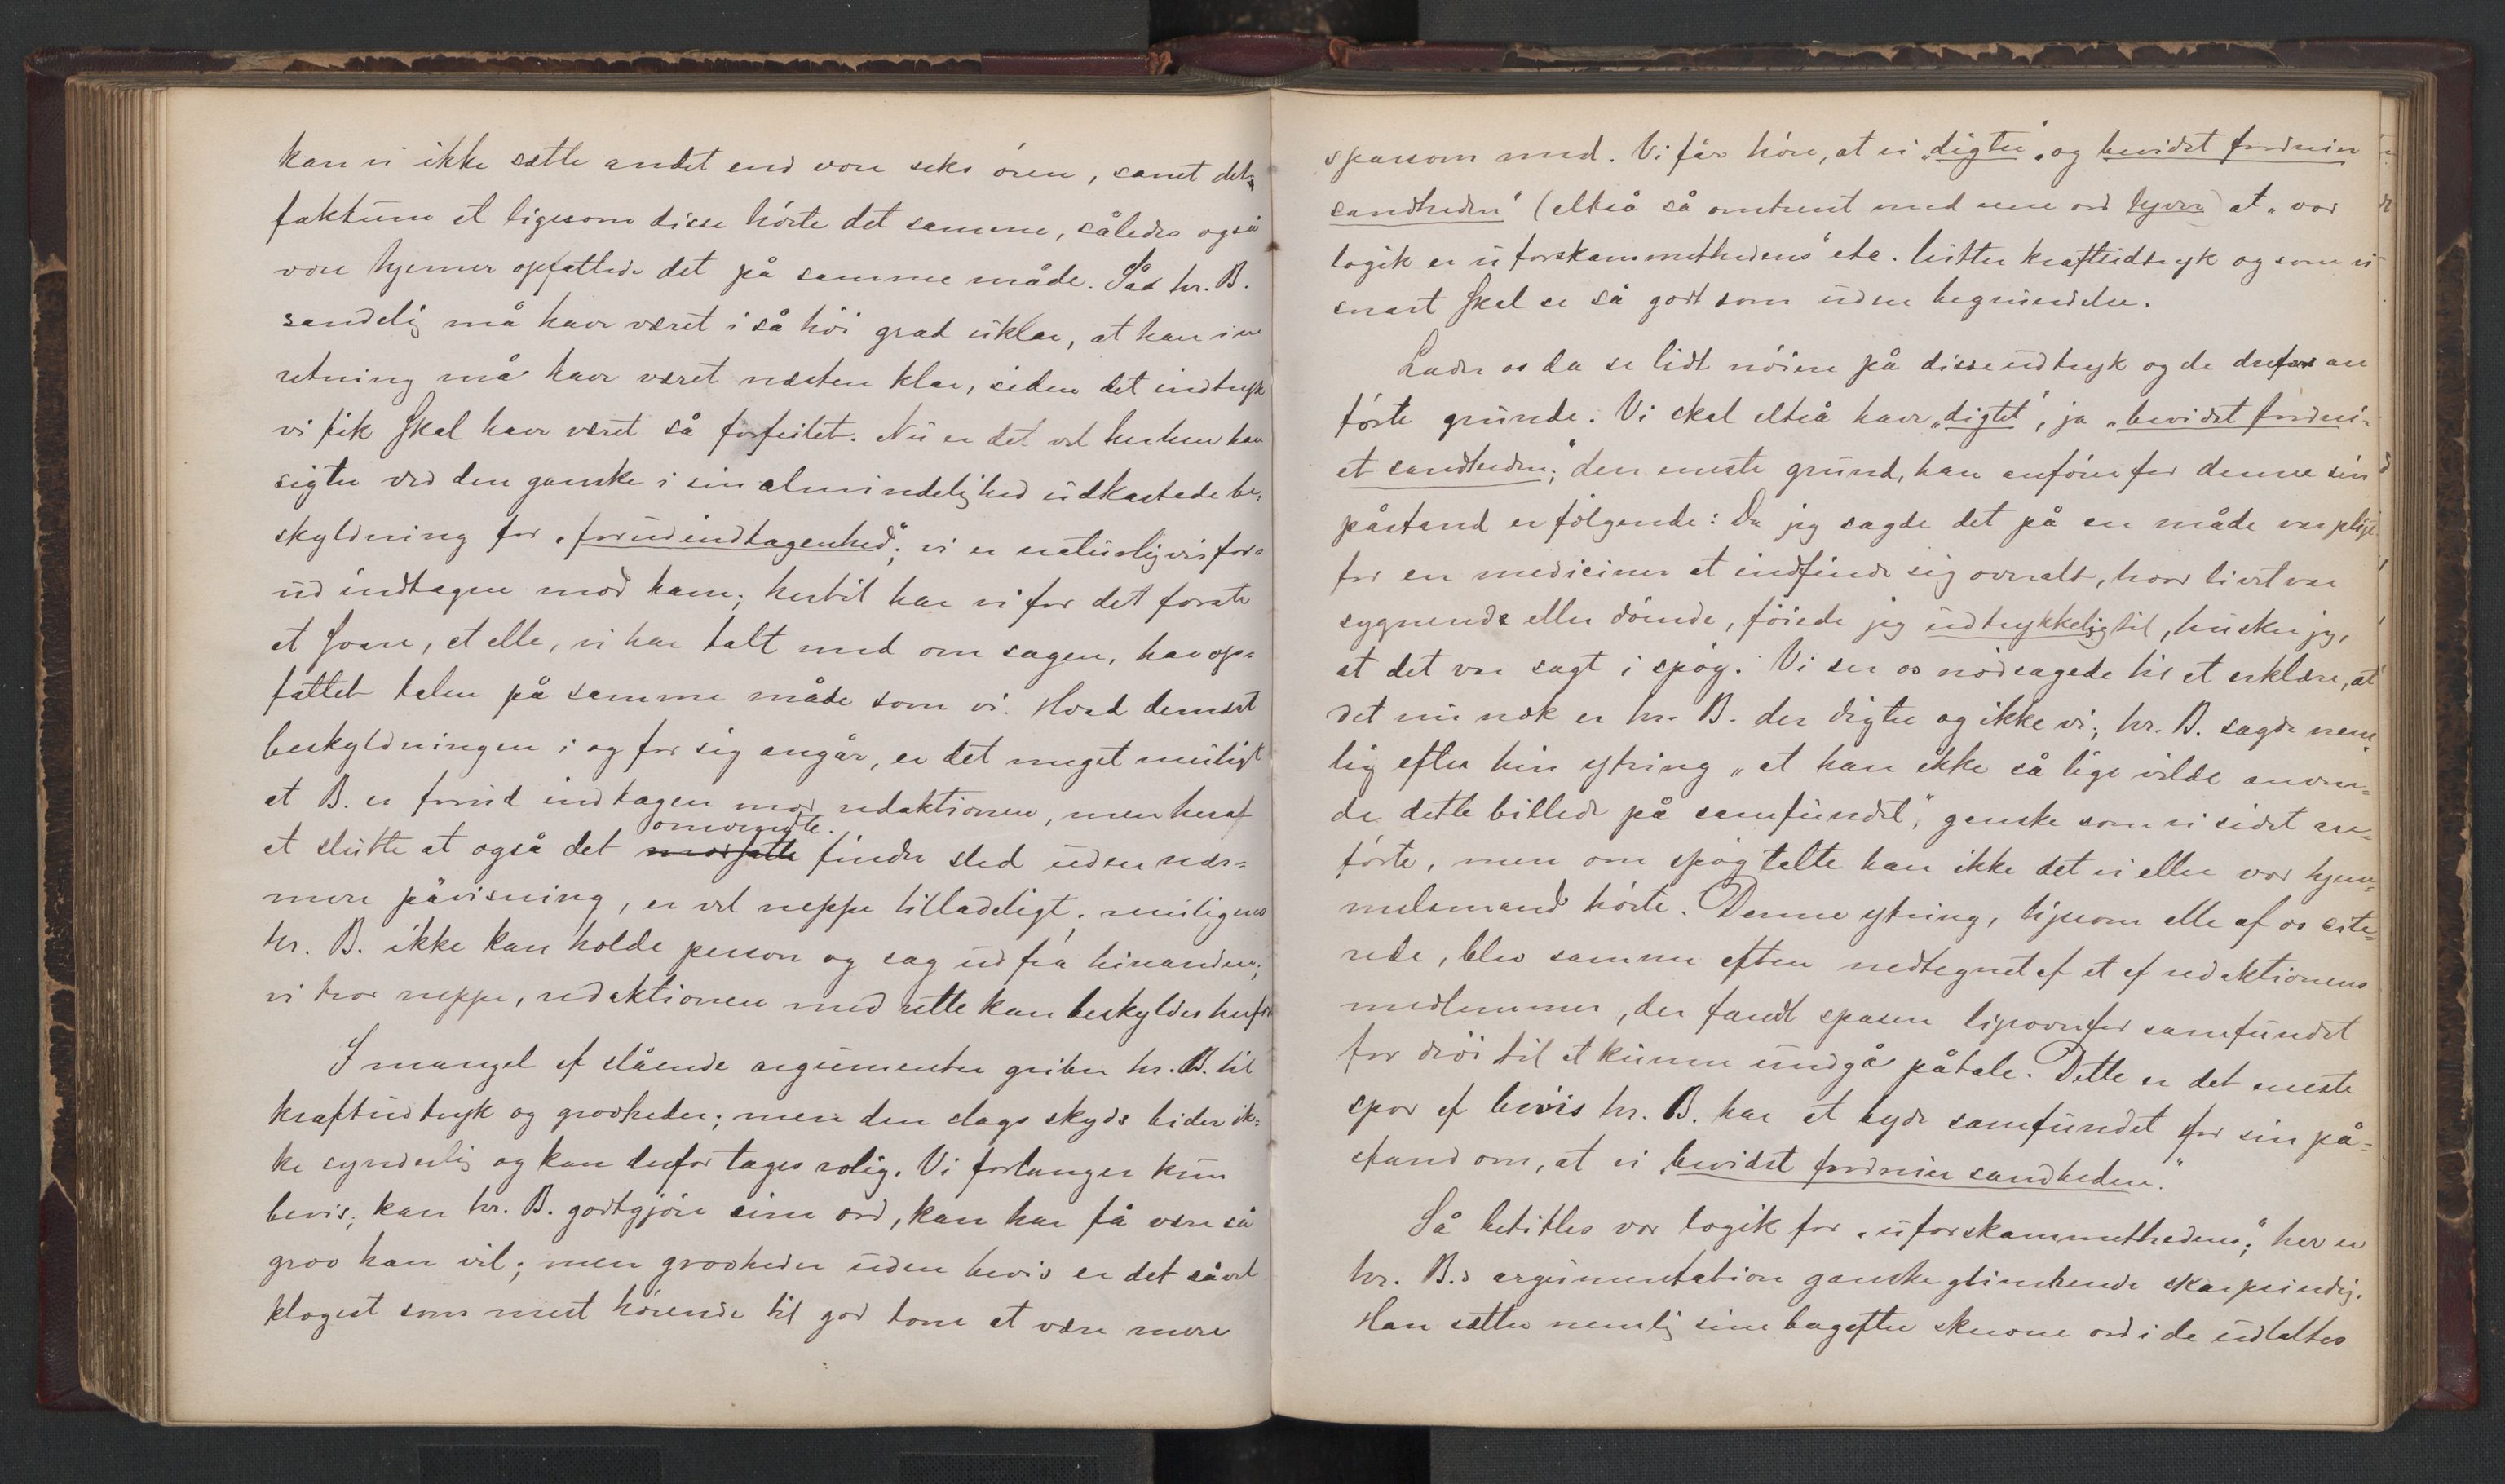 kan vi ikke sætte andet end vore seks ören, samt det
faktum at ligesom disse hörte det samme, således også
vore hjerner opfattede det på samme måde. Så hr. B.
sandelig må have været i så höi grad uklar, at han i en
retning må have været næsten klar, siden det indtryk
vi fik skal have været så forfeilet. Nu er det vel herhen han
sigter ved den ganske i sin almindelighed udkastede be-
skyldning for „forudindtagenhed“; vi er naturligvis for-
ud indtagne mod ham; hertil har vi for det förste
at svare, at alle, vi har talt med om sagen, har op-
fattet talen på samme måde som vi. Hvad dernæst
beskyldningen i og for sig angår, er det meget muligt
at B. er forud indtagen mod redaktionen, men heraf
at slutte at også det modsatte omvendte finder sted uden nær-
mere påvisning, er vel neppe tilladeligt; muligens
hr. B. ikke kan holde person og sag ud fra hinanden;
vi tror neppe, redaktionen med rette kan beskyldes herfor
I mangel af slående argumenter griber hr. B. til
kraftudtryk og grovheder; men den slags skyds bider ik-
ke synderlig og kan derfor tages rolig. Vi forlanger kun
bevis; kan hr. B. godtgjöre sine ord, kan han få være så
grov han vil; men grovheder uden bevis er det såvel
klogest som mest hörende til god tone at være mere
sparsom med. Vi får höre, at vi „digter“ og bevidst fordreier
sandheden“ (altså så omtrent med rene ord lyver) at „vor
logik er uforskammethedens“ etc. lutter kraftudtryk og som vi
snart skal se så godt som uden begrundelse.
Lader os da se lidt nöiere på disse udtryk og de derfor an
förte grunde. Vi skal altså have „digtet“, ja „bevidst fordrei-
et sandheden“; den eneste grund, han anförer for denne sin
påstand er fölgende: Da jeg sagde det på en måde var pligt
for en mediciner at indfinde sig overalt, hvor livet var
sygnende eller döende, föiede jeg udtrykkelig til, husker jeg,
at det var sagt i spög. Vi ser os nödsagede til at erklære, at
det nu nok er hr. B. der digter og ikke vi; hr. B. sagde nem
lig efter hin ytring „at han ikke så lige vilde anven-
de dette billede på samfundet“, ganske som vi sidst an-
förte, men om spög talte han ikke det vi eller vor hjem-
melsmand hörte. Denne ytring, ligesom alle af os cite-
rede, blev samme aften nedtegnet af et af redaktionens
medlemmer, der fandt spasen ligeoverfor samfundet
for dröi til at kunne undgå påtale. Dette er det eneste
spor af bevis hr. B. har at byde samfundet for sin på-
stand om, at vi „bevidst fordreier sandheden.“
Så betitles vor logik for „uforskammethedens“; her er
hr. B.s argumentation ganske glimrende skarpsindig.
Han sætter nemlig sine bagefter skrevne ord i de udtaltes